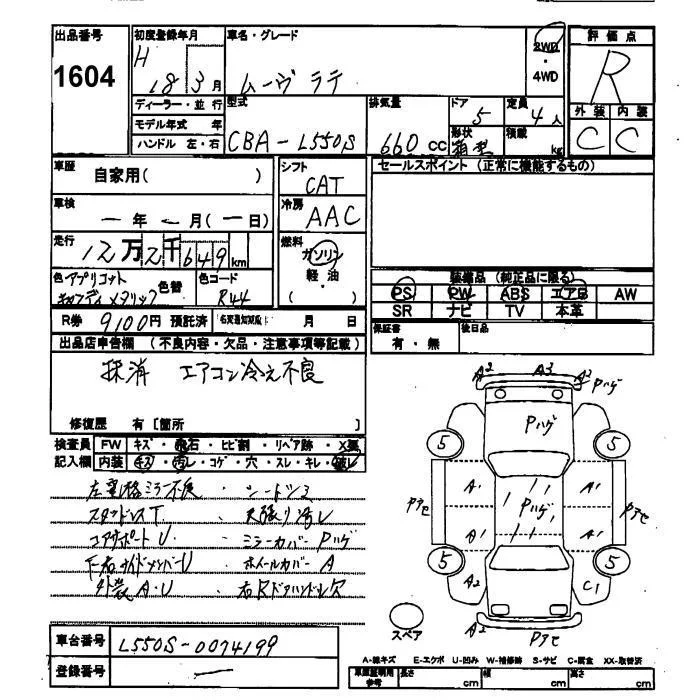 出品番号
1604
初度登録年月
H 18 3 月
ディーラー・並行
モデル年式 年
ハンドル 左・右
車名・グレード
ムーヴ ラテ
2WD
・
4WD
評価点
R
外装 内装
C C
型式
CBA-L550S
排気量
660 CC
ドア
5
形状
箱型
定員
4 人
積載
kg
車歴
自家用( )
シフト
CAT
セールスポイント(正常に機能するもの)
車検
ー年ー月(ー日)
冷房
AAC
走行
12万2千649km
燃料
ガソリン
軽油
( )
色 アプリコット
キャンディメタリック
色替
色コード
R44
装備品(純正品に限る)
PS PW ABS エアB AW
SR ナビ TV 本革
R券 9100円 預託済
名変通知期限 月 日
保証書
有・無
後日品
出品店申告欄(不良内容・欠品・注意事項等記載)
抹消 エアコン冷え不良
修復歴 有[箇所 ]
検査員
記入欄
FW キズ・飛石・ヒビ割・リペア跡・X要
内装 キズ・汚レ・コゲ・穴・スレ・キレ・破レ
左電格ミラー不良・シートシミ
天張り汚レ
コアサポートU・ミラーカバーPハゲ
ホイールカバーA
外装A・U 右RドアハンドルR欠
A2 A3 A2 Pハゲ
Pハゲ
5 5
A1 A1
Pアセ Pハゲ Pアセ
A1 A1
5 5
A2 C1
A2 Pアセ
スペア
車台番号
L550S-0074199
登録番号
ー
A-線キズ E-エクボ U-凹み W-補修跡 S-サビ C-腐食 XX-取替済
車庫証明用
参考
長さ cm 幅 cm 高さ cm